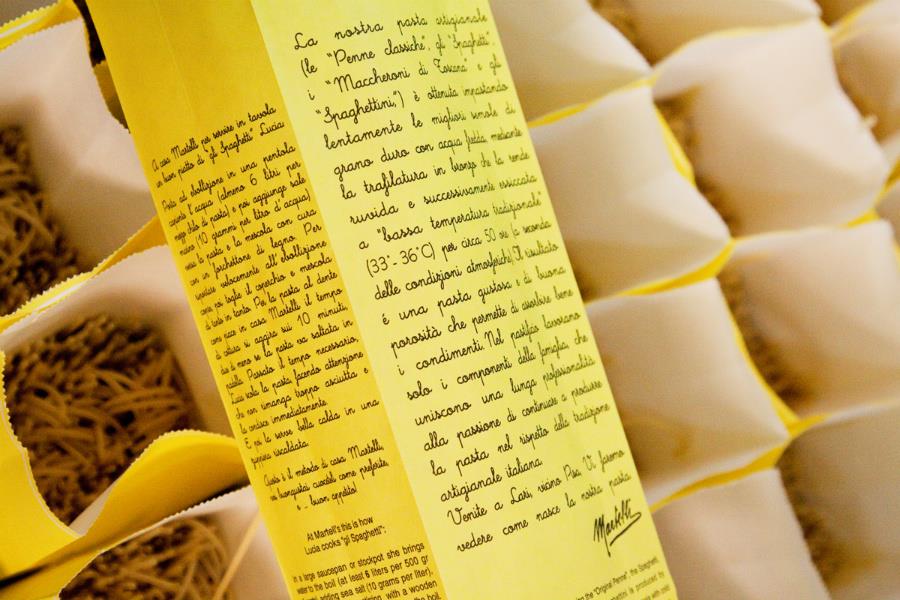 A casa Martelli per servire in tavola
un buon piatto di "gli Spaghetti" Lucia
Porta ad ebollizione in una pentola
capiente l'acqua (almeno 6 litri per
mezzo chilo di pasta) e poi aggiunge sale
marino (10 grammi per litro d'acqua)
versa la pasta e la mescola con cura
con un forchettone di legno. Per
riportare velocemente all'ebollizione
copre, poi toglie il coperchio e mescola
di tanto in tanto. Per la pasta al dente
come piace in casa Martelli il tempo
di cottura si aggira sui 10 minuti,
due di meno se la pasta va saltata in
padella. Passato il tempo necessario,
Lucia scola la pasta facendo attenzione
che non rimanga troppo asciutta e
la condisce immediatamente.
E poi la serve bella calda in una
zuppiera riscaldata.
Questo è il metodo di casa Martelli,
voi buongustai cuoceteli come preferite,
e - buon appetito!
At Martelli's this is how
Lucia cooks "gli Spaghetti":
In a large saucepan or stockpot she brings
water to the boil (at least 6 liters per 500 gr
adding sea salt (10 grams per liter),
with a wooden
the boil,
La nostra pasta artigianale
(le "Penne classiche", gli "Spaghetti",
i "Maccheroni di Toscana" e gli
"Spaghettini",) è ottenuta impastando
lentamente le migliori semole di
grano duro con acqua fredda, mediante
la trafilatura in bronzo che la rende
ruvida e successivamente essiccata
a "bassa temperatura tradizionale"
(33°-36°C) per circa 50 ore (a seconda
delle condizioni atmosferiche). Il risultato
é una pasta gustosa e di buona
porosità che permette di assorbire bene
i condimenti. Nel pastificio lavorano
solo i componenti della famiglia, che
uniscono una lunga professionalità
alla passione di continuare a produrre
la pasta nel rispetto della tradizione
artigianale italiana.
Venite a Lari, vicino Pisa. Vi faremo
vedere come nasce la nostra pasta.
Martelli
the "Original Penne", the Spaghetti,
is produced by